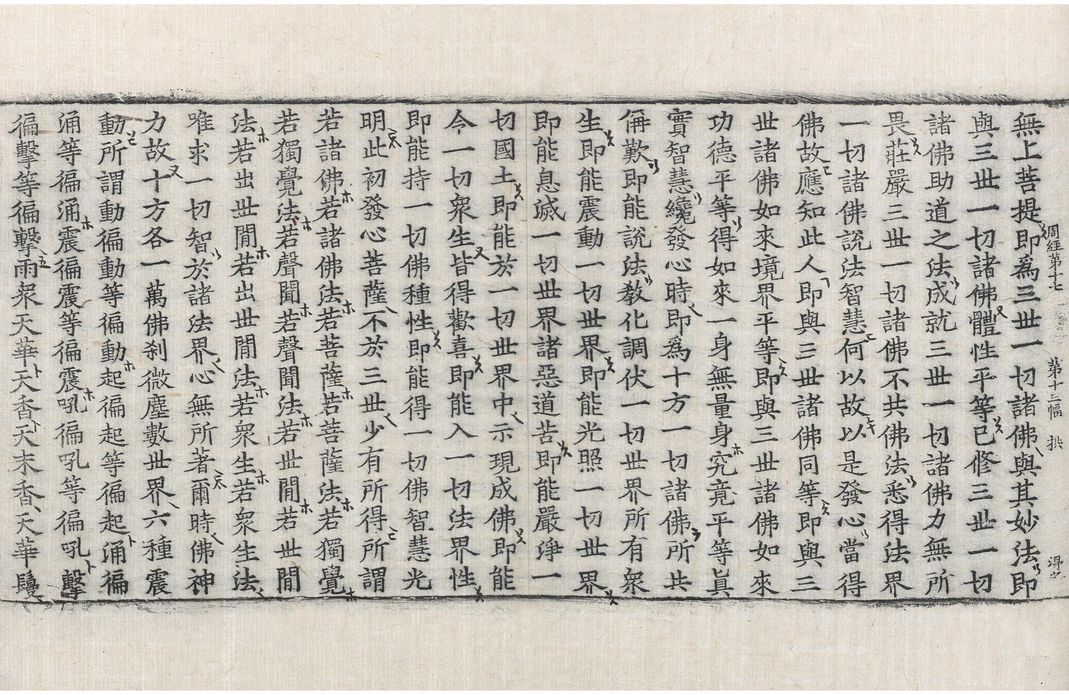 無上菩提即爲三世一切諸佛與其妙法即
周經第十七　第十三幅　拱　淂七
與三世一切諸佛體性平等已修三世一切
諸佛助道之法成就三世一切諸佛力無所
畏莊嚴三世一切諸佛不共佛法悉得法界
一切諸佛說法智慧何以故以是發心當得
佛故應知此人即與三世諸佛同等即與三
世諸佛如來境界平等即與三世諸佛如來
功德平等得如來一身無量身究竟平等眞
實智慧纔發心時即爲十方一切諸佛所共
稱歎即能說法教化調伏一切世界所有衆
生即能震動一切世界即能光照一切世界
即能息滅一切世界諸惡道苦即能嚴淨一
切國土即能於一切世界中示現成佛即能
令一切衆生皆得歡喜即能入一切法界性
即能持一切佛種性即能得一切佛智慧光
明此初發心菩薩不於三世少有所得所謂
若諸佛若諸佛法若菩薩若菩薩法若獨覺
若獨覺法若聲聞若聲聞法若世間若世間
法若出世間若出世間法若衆生若衆生法
唯求一切智於諸法界心無所著爾時佛神
力故十方各一萬佛刹微塵數世界六種震
動所謂動徧動等徧動起徧起等徧起涌徧
涌等徧涌震徧震等徧震吼徧吼等徧吼擊
徧擊等徧擊雨衆天華天香天末香天華鬘